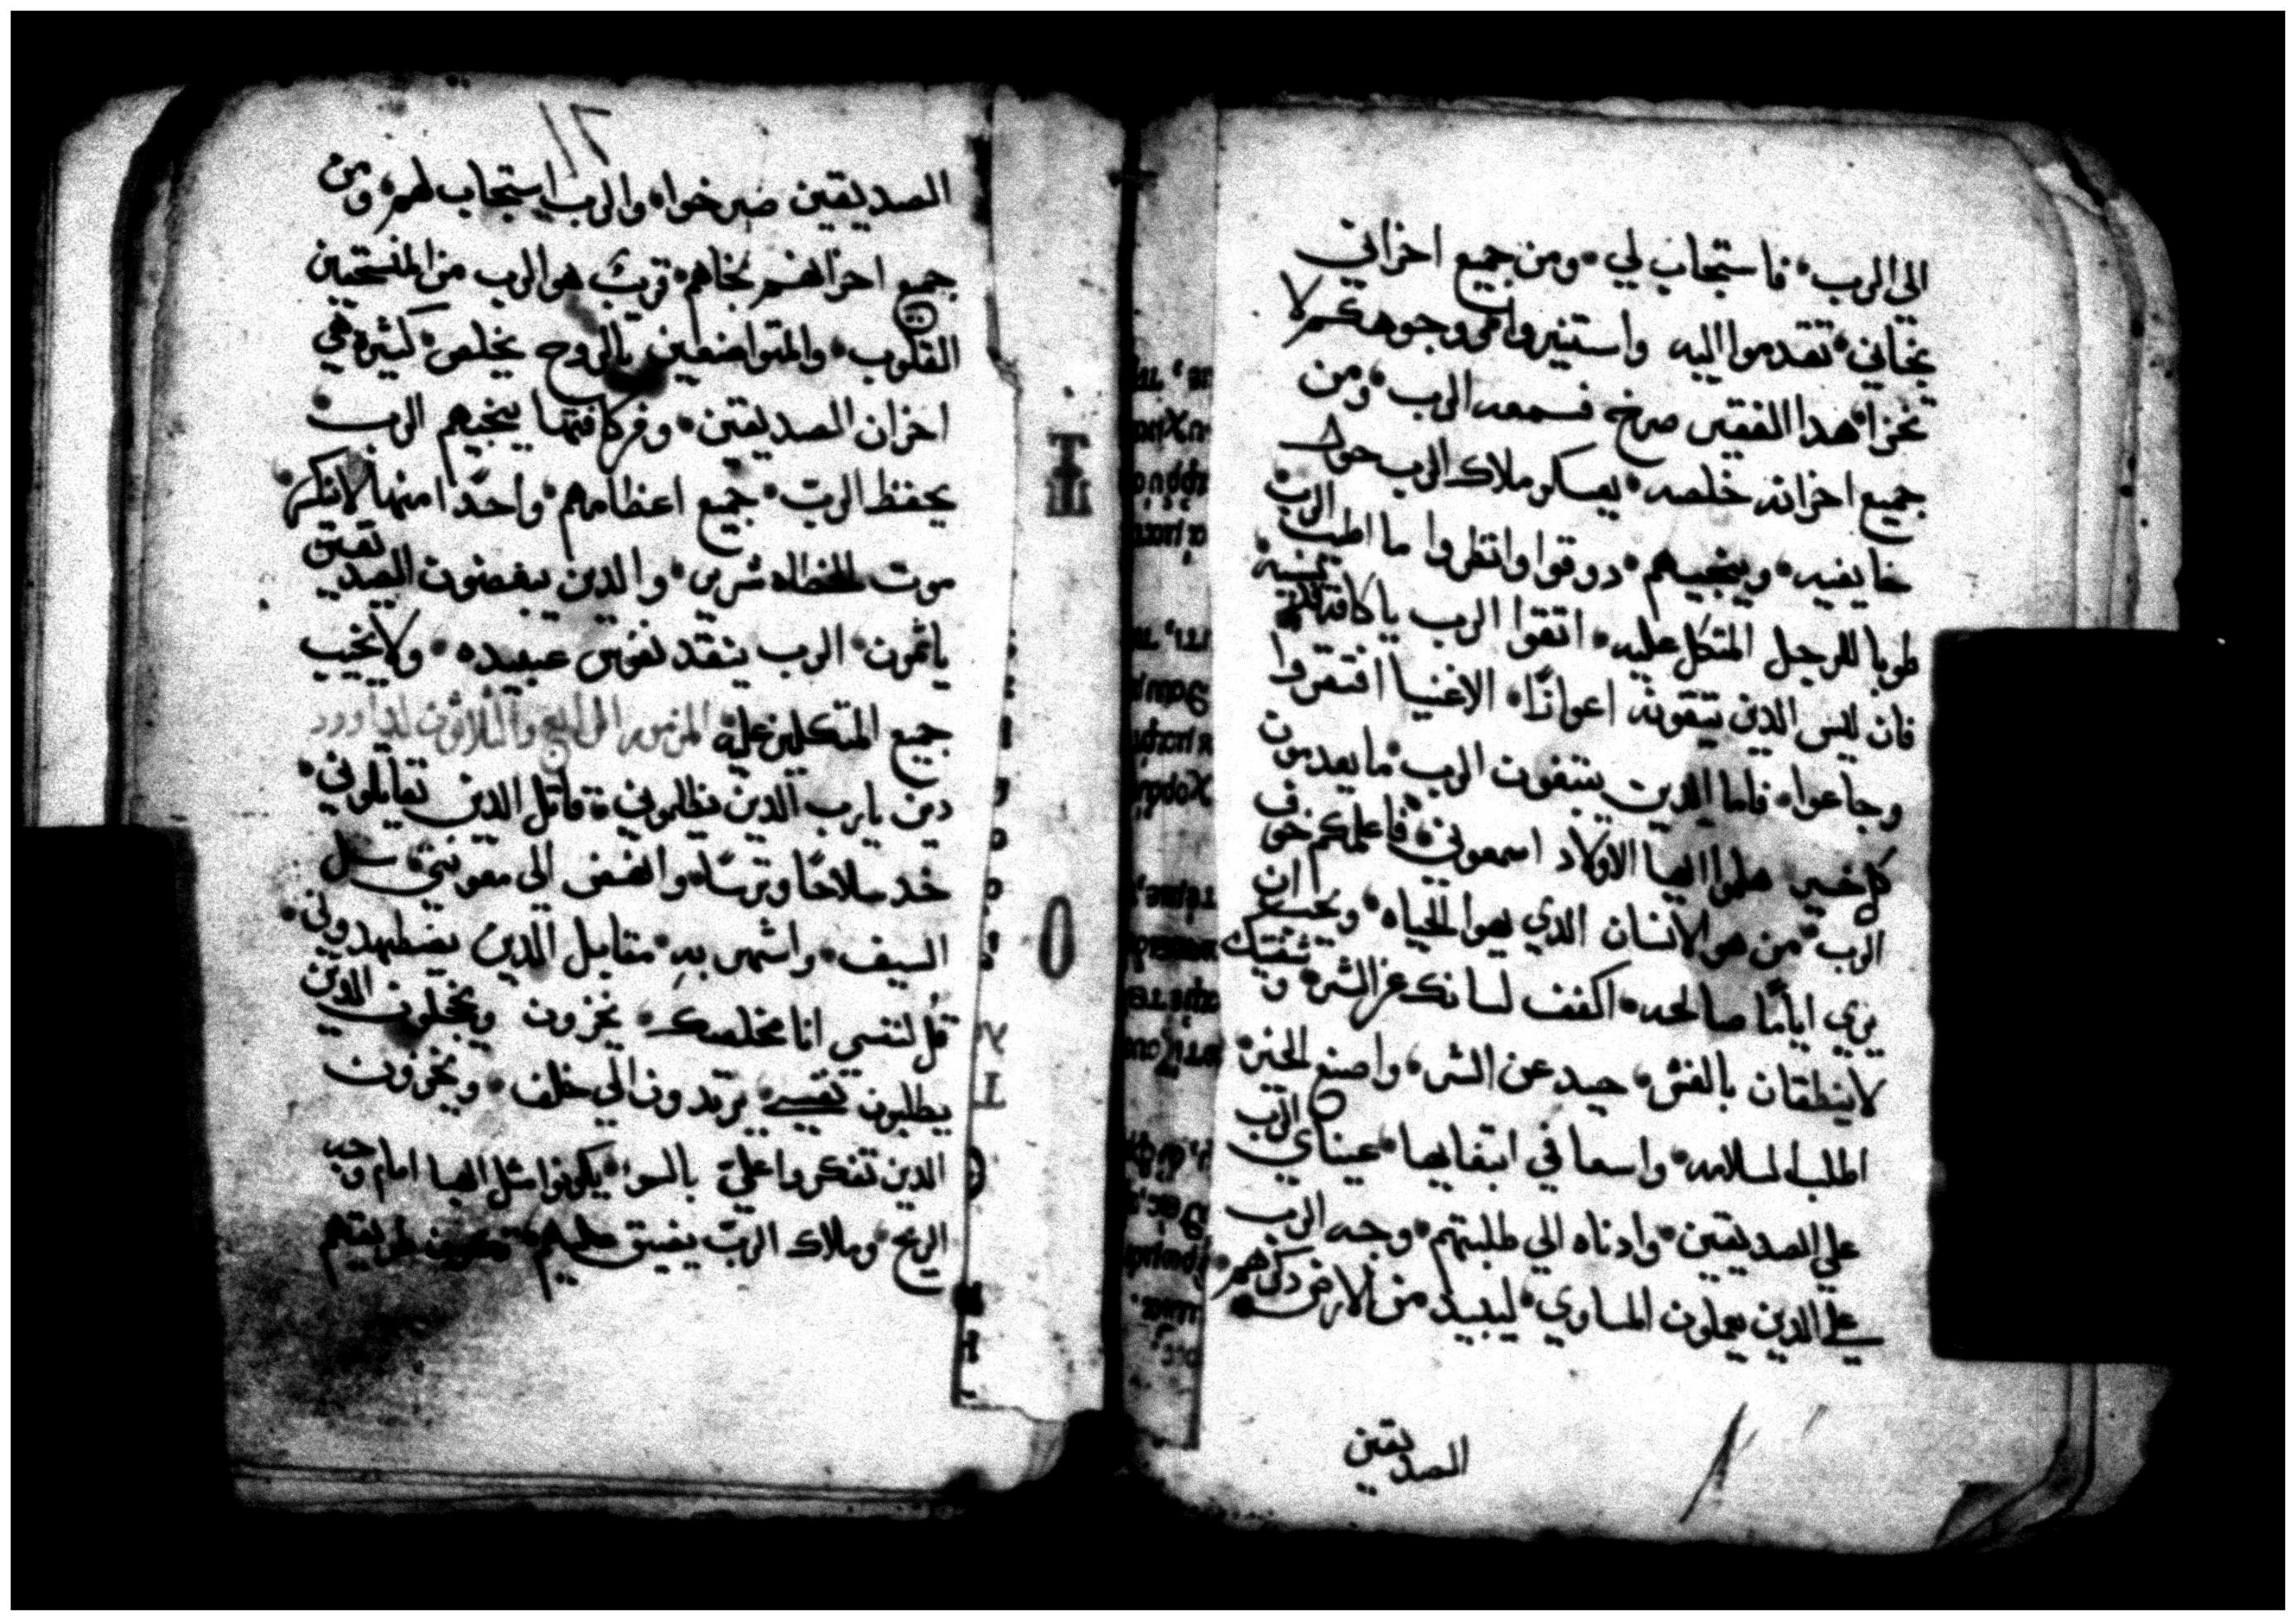 الي الرب فاستجاب لي ومن جميع احزاني
نجاني تقدموا اليه واستنيروا ووجوهكم لا
تخزا هدا الفقير صرخ فسمعه الرب ومن
جميع احزانه خلصه يعسكر ملاك الرب حول
خايفيه وينجيهم دوقوا وانظروا ما اطيب الرب
طوبا للرجل المتكل عليه اتقوا الرب ياكافة قديسيه
فان ليس الدين يتقونه اعوازًا الاغنيا افتقروا
وجاعوا فاما الدين يبتغون الرب ما يعدمون
كل خير هلموا ايها الاولاد اسمعوني فاعلمكم خوف
الرب من هو الانسان الدي يهوا الحياه ويحب ان
يري ايامًا صالحه اكفف لسانك عن الشر وشفتيك
لا ينطقان بالغش حيد عن الشر واصنع الخير
اطلب السلامه واسعا في ابتغايها عيناي الرب
علي الصديقين وادناه الي طلبتهم وجه الرب
علي الدين يعملون المساوي ليبيد من الارض ذكرهم
الصديقين
١٢
الصديقين صرخوا والرب استجاب لهم ومن
جميع احزانهم نجاهم قريب هو الرب من المنسحقين
القلوب والمتواضعين بالروح يخلص كثيرة هي
احزان الصديقين ومن كافتها ينجيهم الرب
يحفظ الرب جميع اعظامهم واحدًا منها لا تنكسر
موت الخطاه شرير والدين يبغضون الصديقين
ياثمون الرب ينقد نفوس عبيده ولا يخيب
جميع المتكلين عليه المزمور الرابع والثلاثون لداوود
دين يارب الدين يظلموني قاتل الدين يقاتلوني
خد سلاحًا وترسًا وانهض الي معونتي سل
السيف واشهر به مقابل الدين يضطهدوني
قل لنفسي انا مخلصك يخزون ويخجلون الدين
يطلبون نفسي يرتدون الي خلف ويخزون
الدين تفكروا علي بالسوا يكونوا مثل الهبا امام وجه
الريح وملاك الرب يضيق عليهم طريقهم